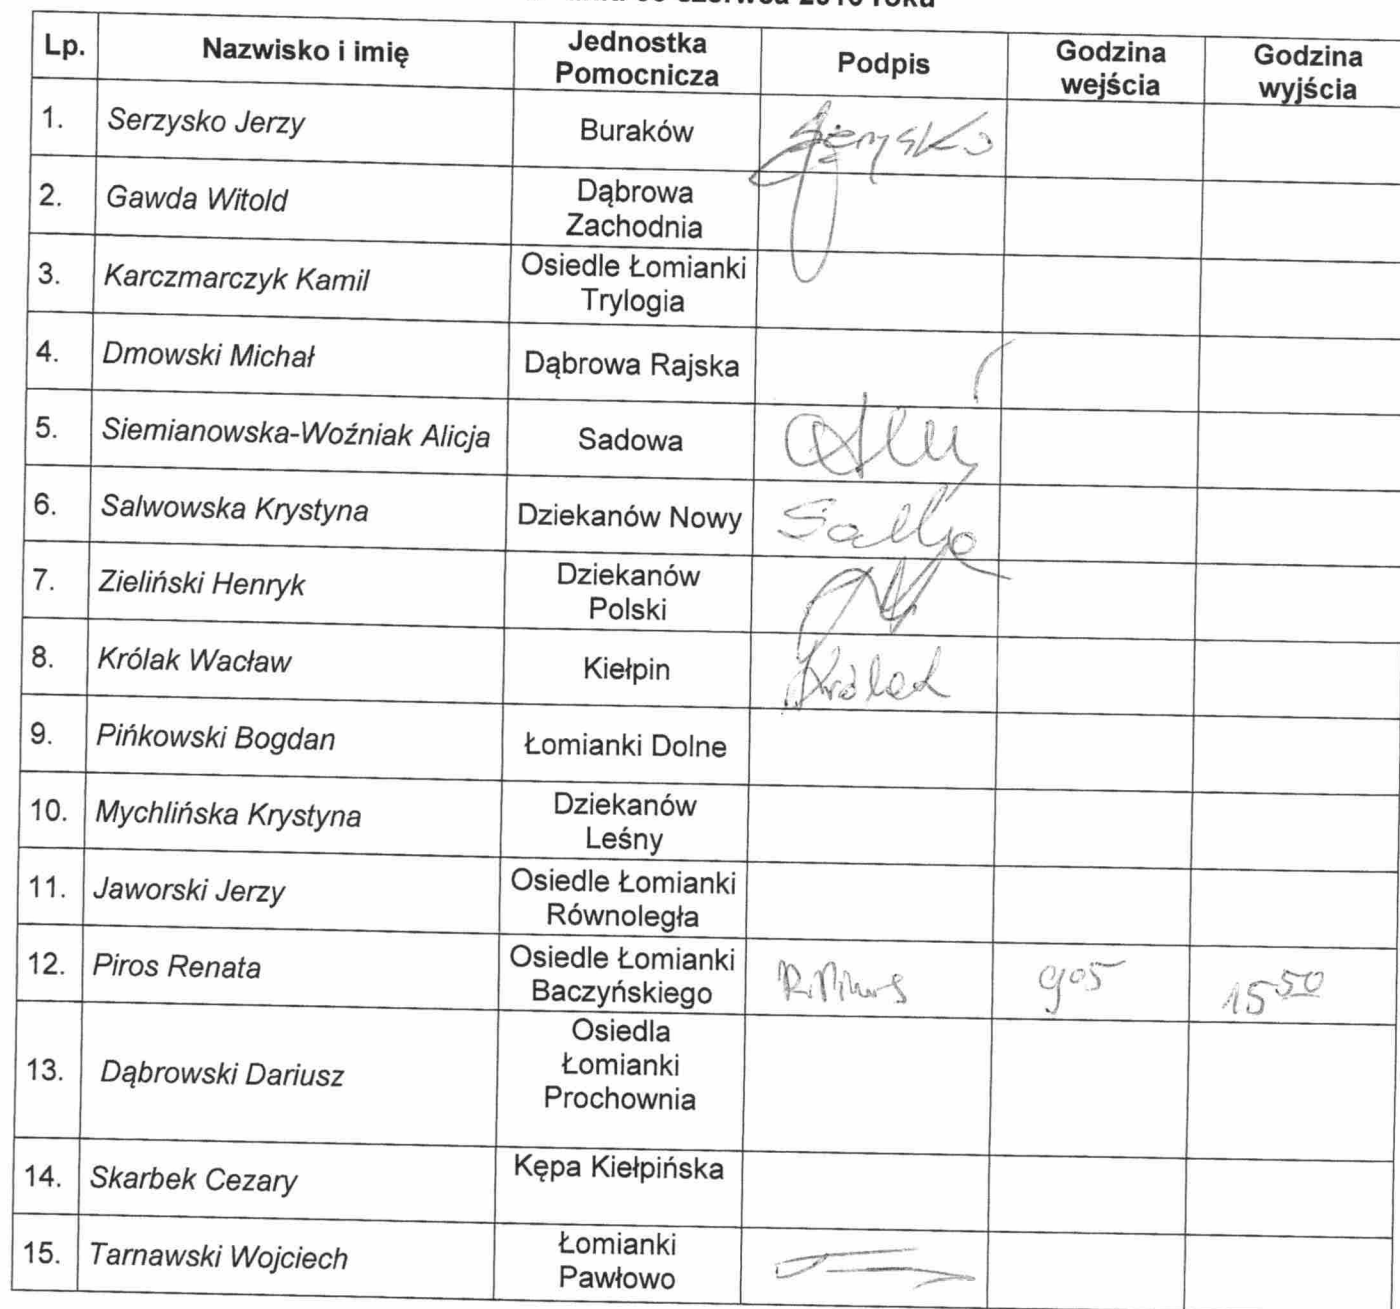 czerwca 2016 roku
Lp. Nazwisko i imię Jednostka Pomocnicza Podpis Godzina wejścia Godzina wyjścia
1. Serzysko Jerzy Buraków
2. Gawda Witold Dąbrowa Zachodnia
3. Karczmarczyk Kamil Osiedle Łomianki Trylogia
4. Dmowski Michał Dąbrowa Rajska
5. Siemianowska-Woźniak Alicja Sadowa
6. Salwowska Krystyna Dziekanów Nowy
7. Zieliński Henryk Dziekanów Polski
8. Królak Wacław Kiełpin Królak
9. Pińkowski Bogdan Łomianki Dolne
10. Mychlińska Krystyna Dziekanów Leśny
11. Jaworski Jerzy Osiedle Łomianki Równoległa
12. Piros Renata Osiedle Łomianki Baczyńskiego 905 15 50
13. Dąbrowski Dariusz Osiedla Łomianki Prochownia
14. Skarbek Cezary Kępa Kiełpińska
15. Tarnawski Wojciech Łomianki Pawłowo